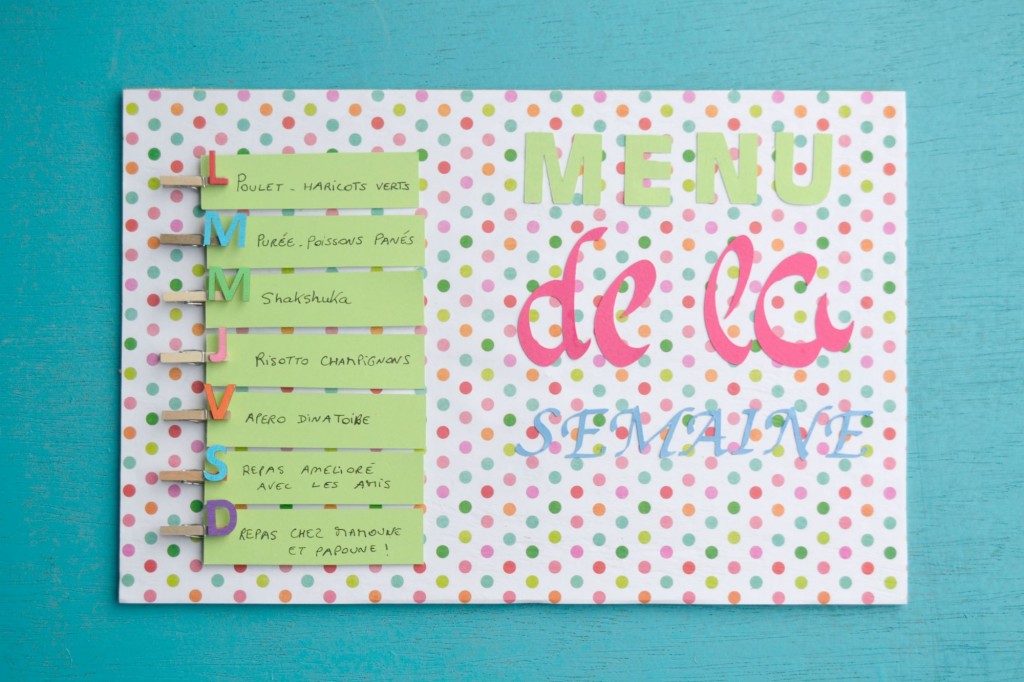 MENU
de la
SEMAINE
L POULET - HARICOTS VERTS
M PURÉE - POISSONS PANÉS
M Shakshuka
J RISOTTO CHAMPIGNONS
V APERO DINATOIRE
S REPAS AMELIORÉ
AVEC LES AMIS
D REPAS CHEZ MAMOUNE
ET PAPOUNE !